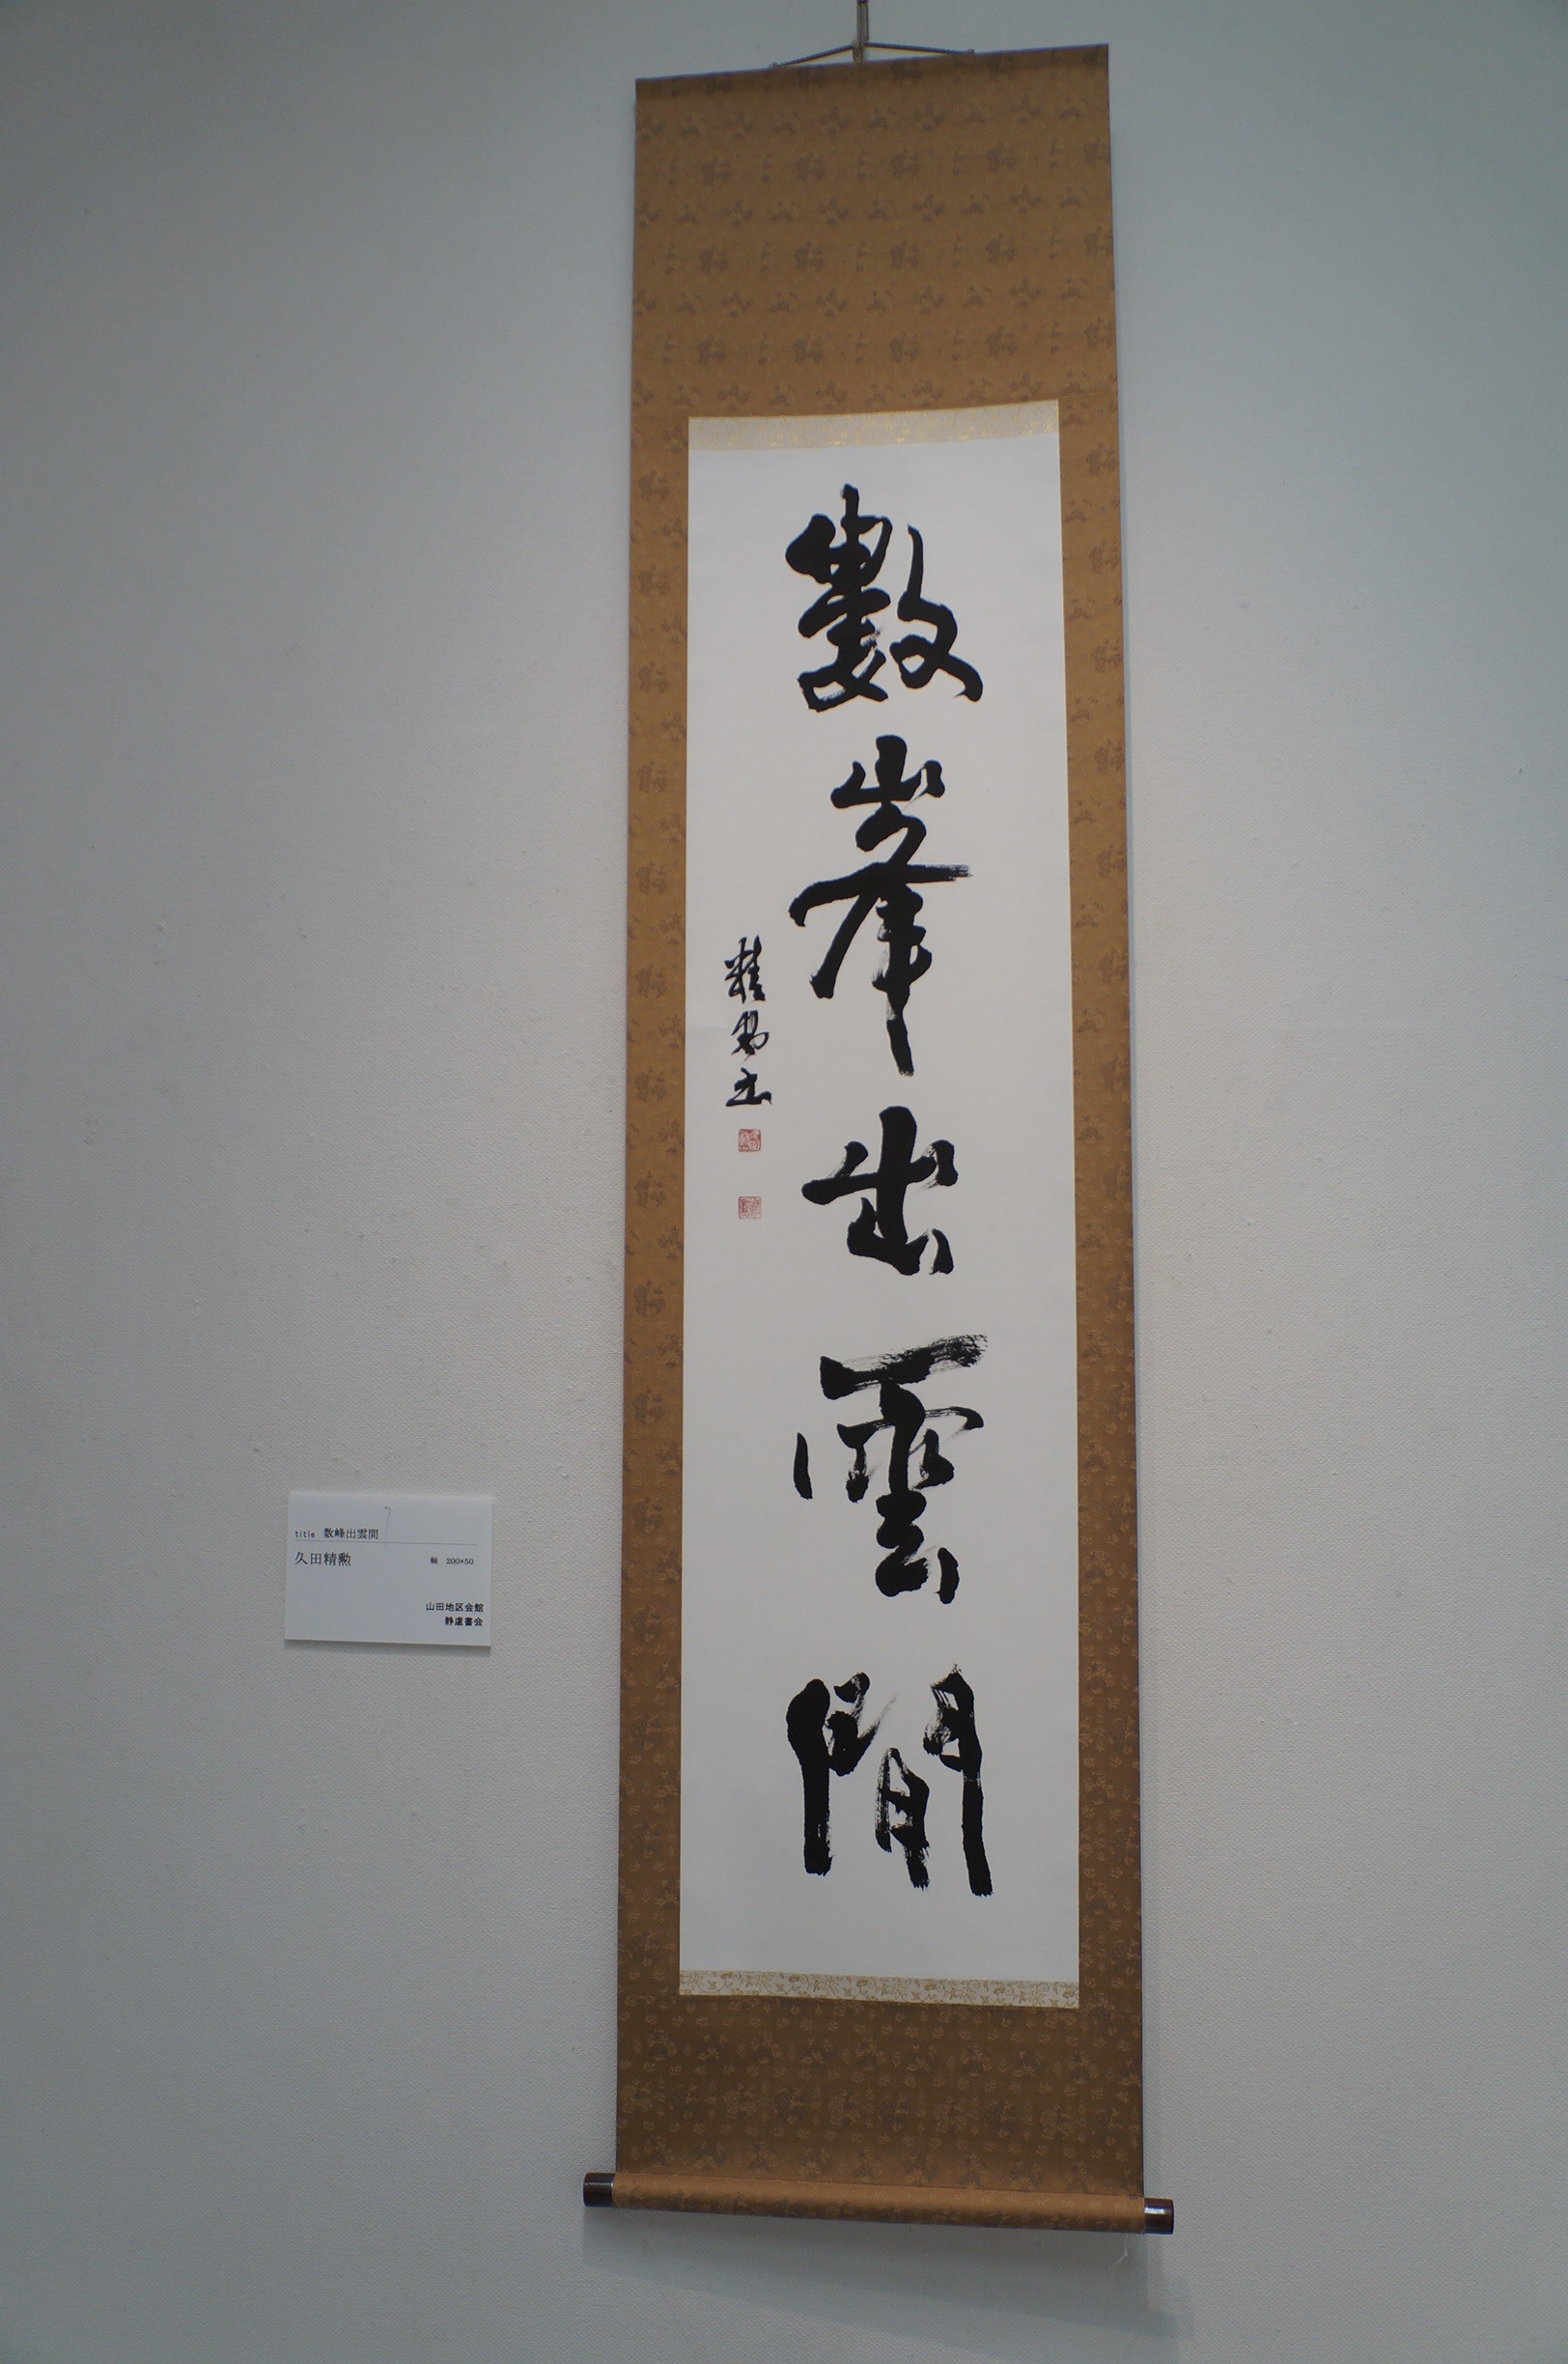 數峯出雲間
精勲書
title 数峰出雲間
久田精勲 軸 200×50
山田地区会館
静慮書会